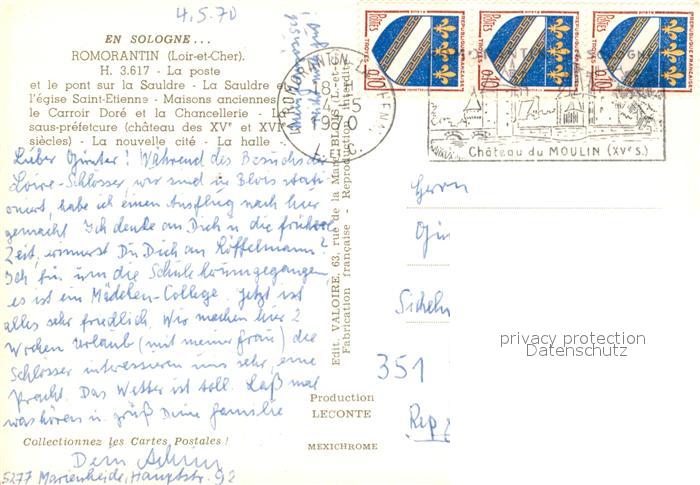 4.5.70
EN SOLOGNE...
ROMORANTIN (Loir-et-Cher).
H. 3.617 - La poste
et le pont sur la Sauldre - La Sauldre et
l'église Saint-Etienne - Maisons anciennes
le Carroir Doré et la Chancellerie - La
saus-préfetcure (château des XVe et XVIe
siècles) - La nouvelle cité - La halle -
Lieber Günter! Während des Besuchs der
Loire-Schlösser, wir sind in Blois stati
oniert, habe ich einen Ausflug nach hier
gemacht. Ich denke an Dich u. die frühere
Zeit, erinnerst Du Dich an Röffelmann?
Ich bin um die Schule herumgegangen
es ist ein Mädchen-College. Jetzt ist
alles sehr friedlich. Wir machen hier 2
Wochen Urlaub (mit meiner Frau) die
Schlösser interessieren uns sehr, eine
Pracht. Das Wetter ist toll. Laß mal
was hören u. grüß Deine Familie
Collectionnez les Cartes Postales!
Dein
5277 Marienheide, Hauptstr. 92
Edit. VALOIRE, 63, rue de la Mar. BLOIS
Fabrication française - Reproduction interdite
Production
LECONTE
MEXICHROME
ROMORANTIN
18H
4-5
1970
POSTES
REPUBLIQUE FRANÇAISE
0,10
TROYES
POSTES
REPUBLIQUE FRANÇAISE
0,10
TROYES
POSTES
REPUBLIQUE FRANÇAISE
0,10
TROYES
Château du MOULIN (XVe s.)
Herrn
Gün
351
Rep
privacy protection
Datenschutz